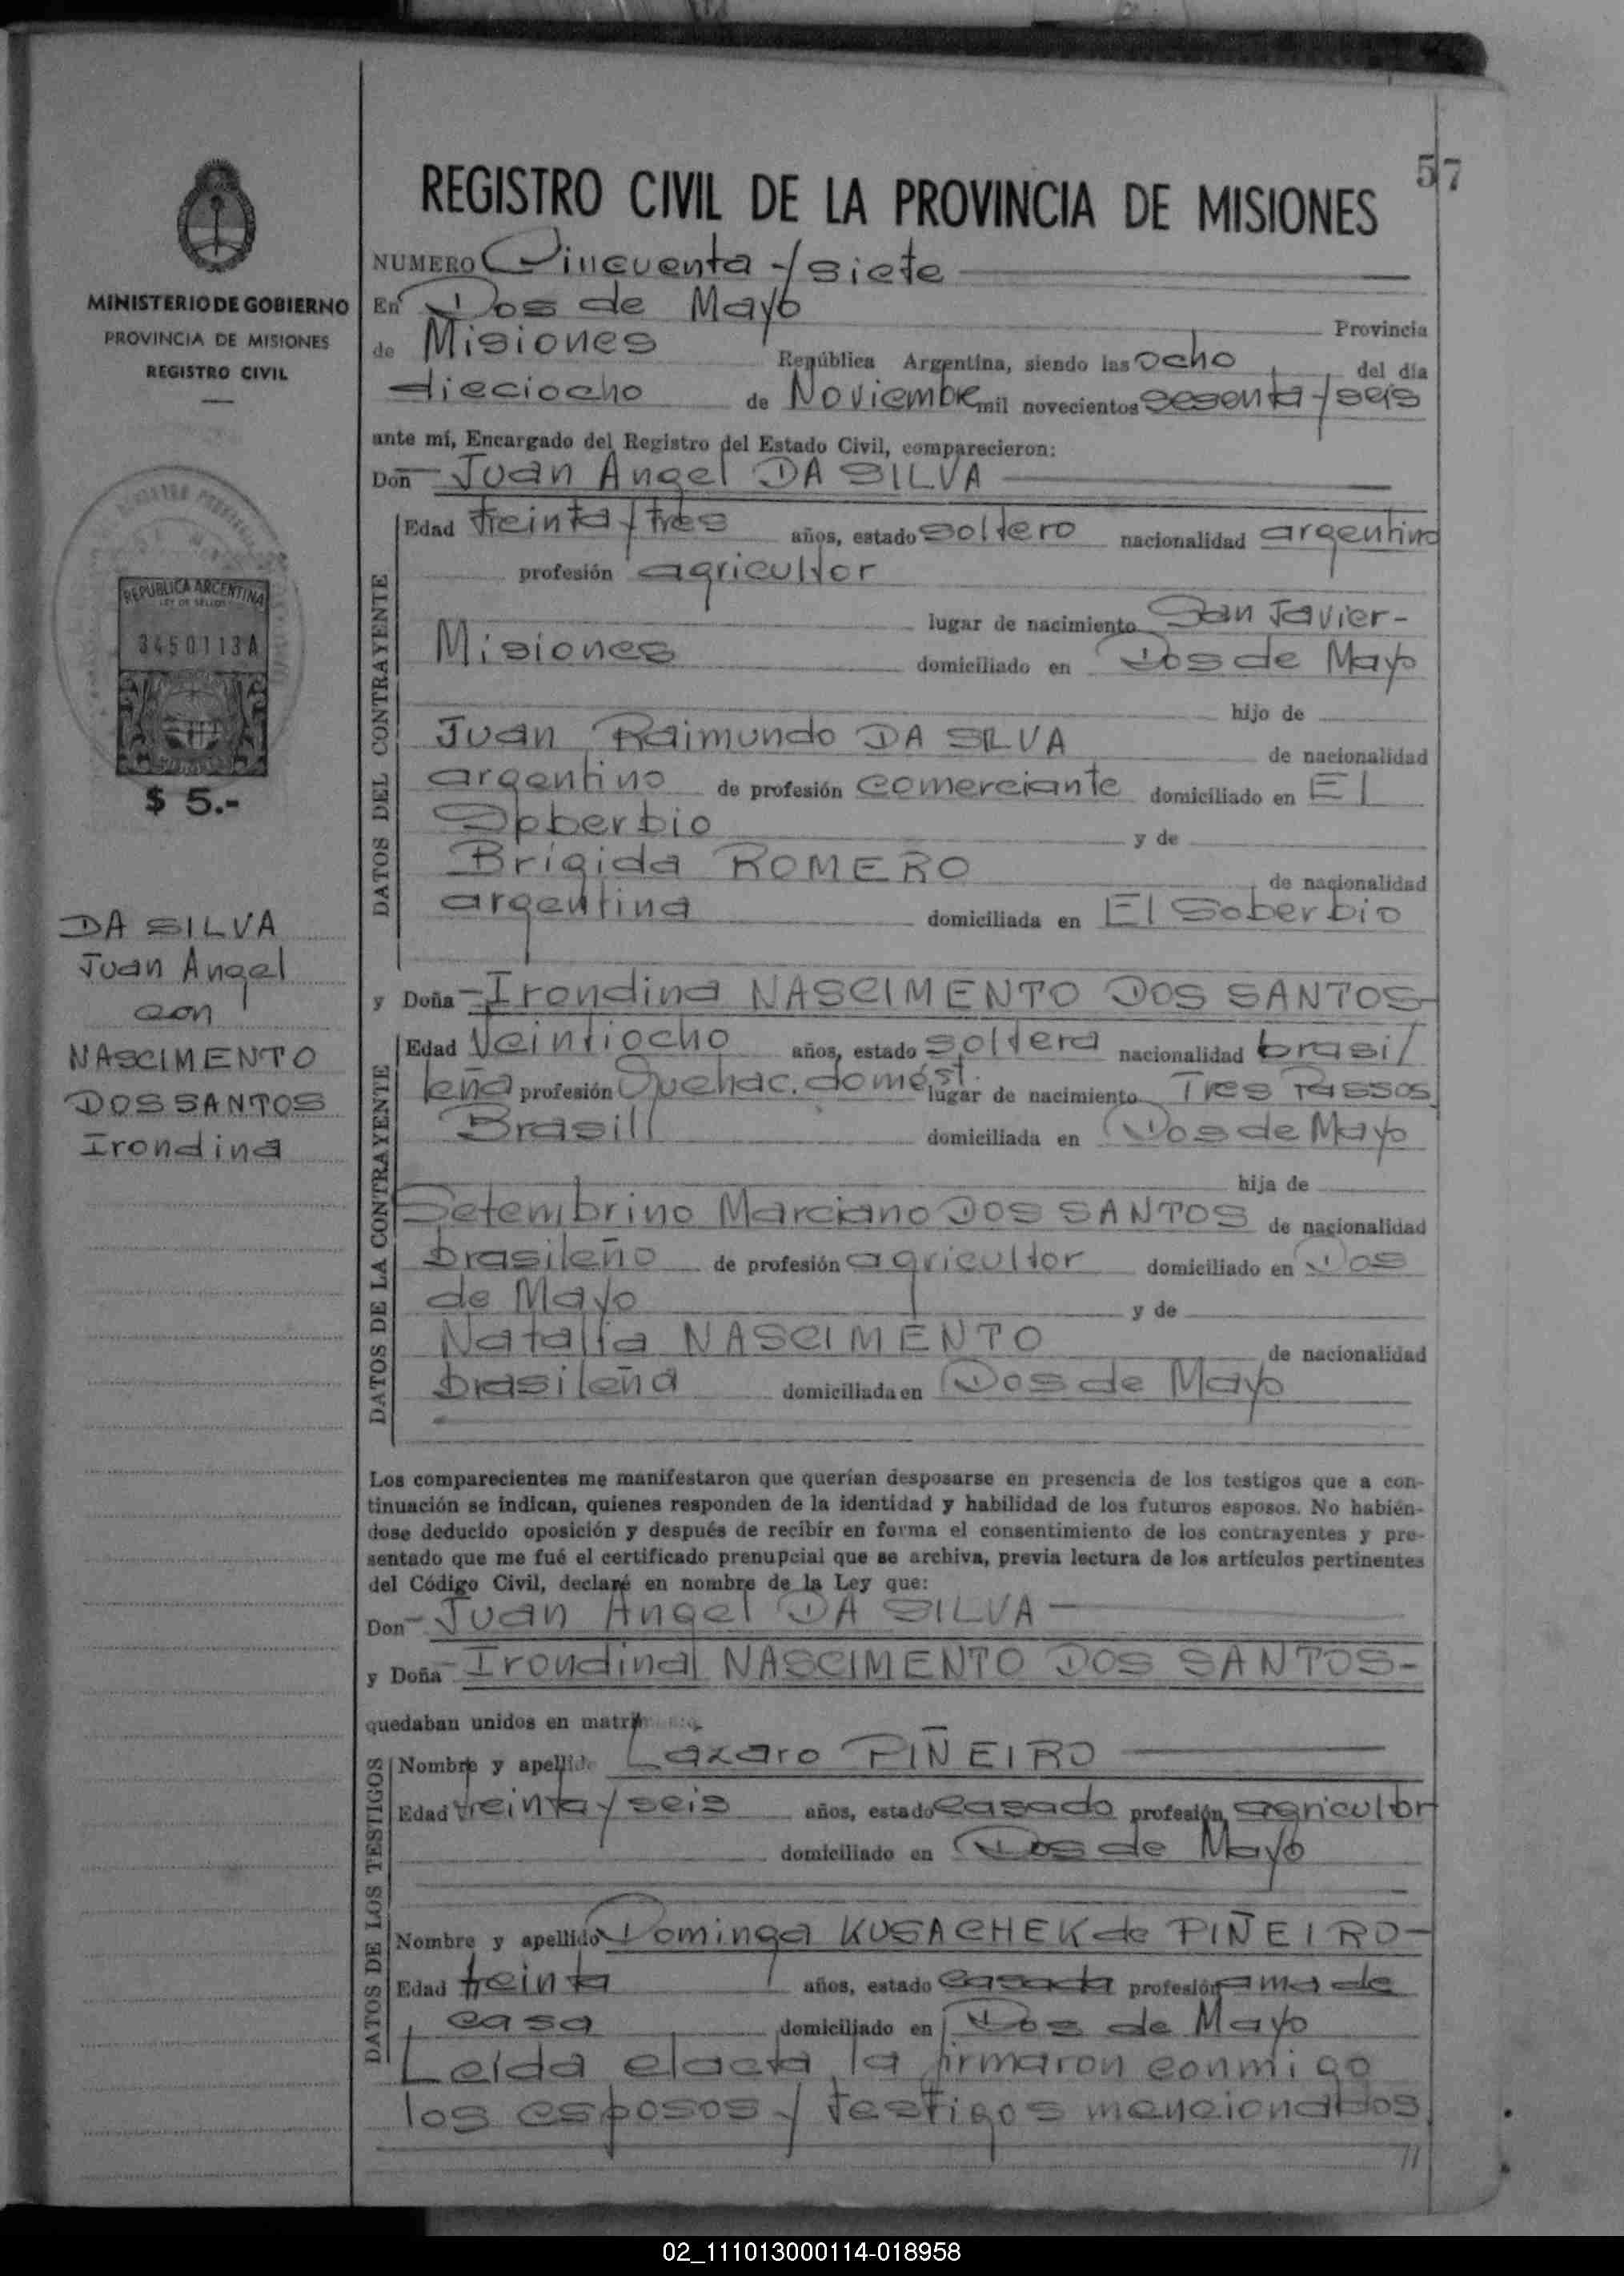 57
REGISTRO CIVIL DE LA PROVINCIA DE MISIONES
MINISTERIO DE GOBIERNO
PROVINCIA DE MISIONES
REGISTRO CIVIL
REPUBLICA ARGENTINA
LEY DE SELLOS
3450113A
$ 5.-
DA SILVA
Juan Angel
con
NASCIMENTO
DOS SANTOS
Irondina
NUMERO Cincuenta y siete
En Dos de Mayo Provincia
de Misiones República Argentina, siendo las ocho del día
dieciocho de Noviembre mil novecientos sesenta y seis
ante mí, Encargado del Registro del Estado Civil, comparecieron:
Don Juan Angel DA SILVA
DATOS DEL CONTRAYENTE
Edad treinta y tres años, estado soltero nacionalidad argentino
profesión agricultor
lugar de nacimiento San Javier-
Misiones domiciliado en Dos de Mayo
hijo de
Juan Raimundo DA SILVA de nacionalidad
argentino de profesión comerciante domiciliado en El
Soberbio y de
Brígida ROMERO de nacionalidad
argentina domiciliada en El Soberbio
y Doña Irondina NASCIMENTO DOS SANTOS-
DATOS DE LA CONTRAYENTE
Edad Veintiocho años, estado soltera nacionalidad brasil
leña profesión Quehac. domést. lugar de nacimiento Tres Passos
Brasil domiciliada en Dos de Mayo
hija de
Setembrino Marciano DOS SANTOS de nacionalidad
brasileño de profesión agricultor domiciliado en Dos
de Mayo y de
Natalia NASCIMENTO de nacionalidad
brasileña domiciliada en Dos de Mayo
Los comparecientes me manifestaron que querían desposarse en presencia de los testigos que a con-
tinuación se indican, quienes responden de la identidad y habilidad de los futuros esposos. No habién-
dose deducido oposición y después de recibir en forma el consentimiento de los contrayentes y pre-
sentado que me fué el certificado prenupcial que se archiva, previa lectura de los artículos pertinentes
del Código Civil, declaré en nombre de la Ley que:
Don Juan Angel DA SILVA
y Doña Irondina NASCIMENTO DOS SANTOS-
quedaban unidos en
DATOS DE LOS TESTIGOS
Nombre y apellido Lazaro PIÑEIRO
Edad treinta y seis años, estado casado profesión agricultor
domiciliado en Dos de Mayo
Nombre y apellido Dominga KUSACHEK de PIÑEIRO-
Edad treinta años, estado casada profesión ama de
casa domiciliado en Dos de Mayo
Leída el acta la firmaron conmigo
los esposos y testigos mencionados
02_111013000114-018958